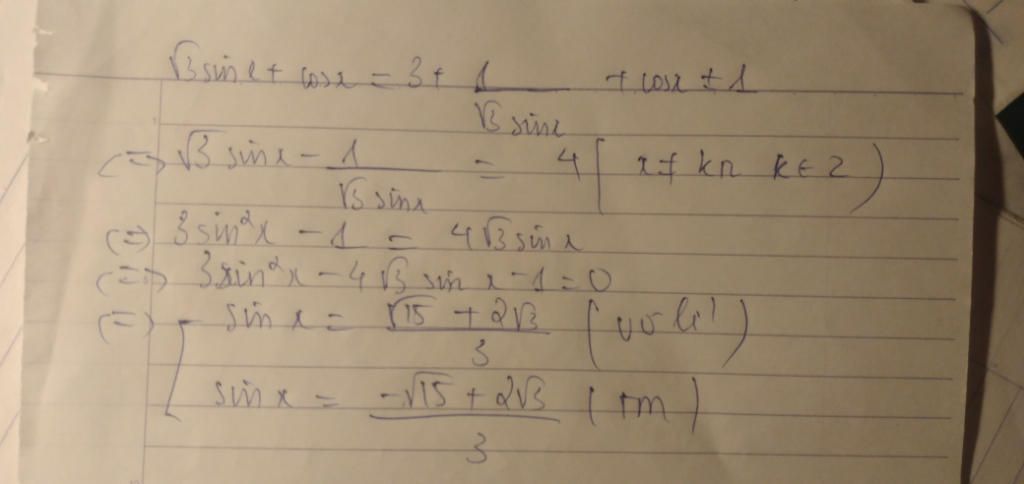 √3 sin x + cos x = 3 + 1/(√3 sin x) + cos x + 1
(=) √3 sin x - 1/(√3 sin x) = 4 ( x ≠ kπ k ∈ Z )
(=) 3sin²x - 1 = 4√3 sin x
(=) 3sin²x - 4√3 sin x - 1 = 0
(=) [ sin x = (√15 + 2√3)/3 ( vô lí )
sin x = (-√15 + 2√3)/3 ( tm )